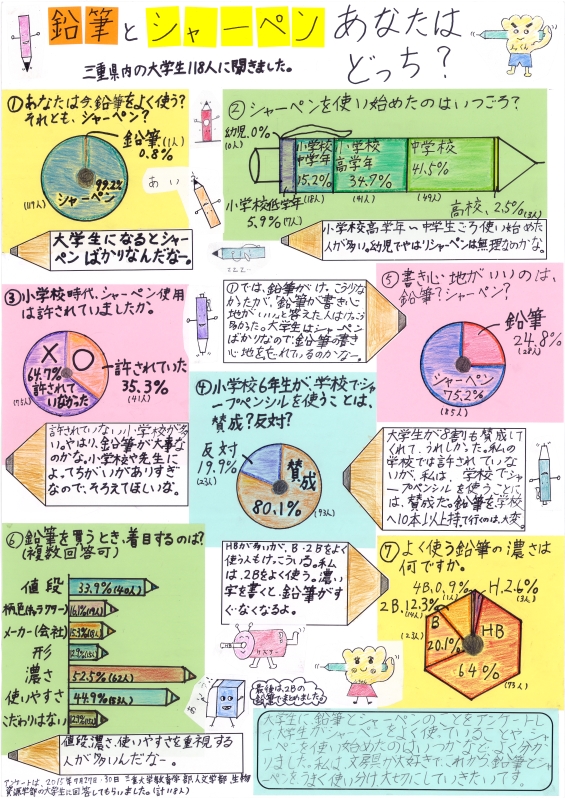 鉛筆とシャーペン あなたは
どっち?
三重県内の大学生118人に聞きました。
①あなたは今、鉛筆をよく使う?
それとも、シャーペン?
鉛筆(1人)
0.8%
99.2%
シャーペン
大学生になるとシャー
ペンばかりなんだなー。
あい
②シャーペンを使い始めたのはいつごろ?
幼児.0%
(0人)
小学校
中学年
15.2%
(18人)
小学校
高学年
34.7%
(41人)
中学校
41.5%
(49人)
高校、2.5%(3人)
小学校低学年
5.9%(7人)
小学校高学年〜中学生ごろ使い始めた
人が多い。幼児でやはりシャーペンは無理なのかな。
③小学校時代、シャーペン使用
は許されていましたか。
64.7%
許されて
いなかった
許されていた
35.3%
(41人)
許されていない小学校が多
い。やはり、鉛筆が大事な
のかな。小学校や先生に
よってちがいがありすぎ
なので、そろえてほしいな。
①では、鉛筆がけっこう少な
かったが、鉛筆が書き心
地がいい。と答えた人はけっこう
多かった。大学生はシャーペン
ばかりなので、鉛筆の書き
心地を忘れているのかなー。
⑤書き心地がいいのは、
鉛筆?シャーペン?
鉛筆
24.8%
(28人)
シャーペン
75.2%
(85人)
④小学校6年生が学校でシャ
ープペンシルを使うことは、
賛成?反対?
反対
19.9%
(23人)
賛成
80.1%
(93人)
大学生が8割も賛成して
くれて、うれしかった。私の
学校では許されていな
いが、私は、学校でシャ
ープペンシルを使うことに
は、賛成だ。鉛筆を学校
へ10本以上持って行くのは、大変。
⑥鉛筆を買うとき、着目するのは?
(複数回答可)
値段
33.9%(40人)
柄・色(キャラクター)
16.1%(19人)
メーカー(会社)
15.3%(18人)
形
濃さ
52.5%(62人)
使いやすさ
44.9%(53人)
こだわりはない
値段、濃さ、使いやすさを重視する
人が多いんだなー。
HBが多いが、B・2Bをよく
使う人もけっこういる。私
は、2Bをよく使う。濃い
字を書くと、鉛筆がす
ぐなくなるよ。
⑦よく使う鉛筆の濃さは
何ですか。
4B.0.9%
(1人)
H.2.6%
(3人)
2B.12.3%
(14人)
B
20.1%
(23人)
HB
64%
(73人)
最後は、2Bの
鉛筆でまとめました
大学生に、鉛筆とシャーペンのことをアンケートし
て大学生がシャーペンをよく使っていることや、シャ
ーペンを使い始めたのはいつかなど、よく分かり
ました。私は、文房具が大好きで、これから鉛筆とシャ
ーペンをうまく使い分け大切にしていきたいです。
アンケートは、2015年7月29日・30日 三重大学教育学部、人文学部、生物
資源学部の大学生に回答してもらいました。(計118人)